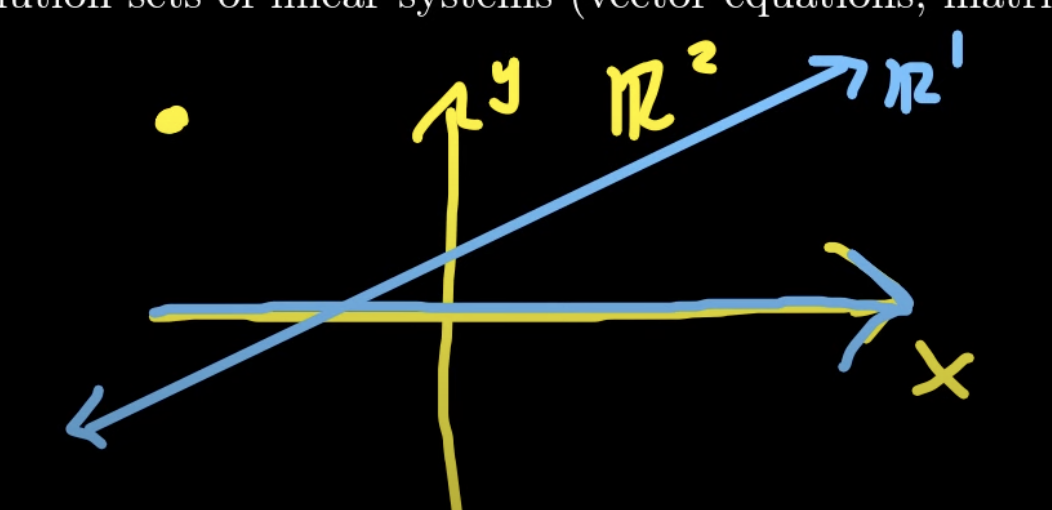 lution sets of linear systems (vector equations, matri
y
ℝ²
ℝ¹
x